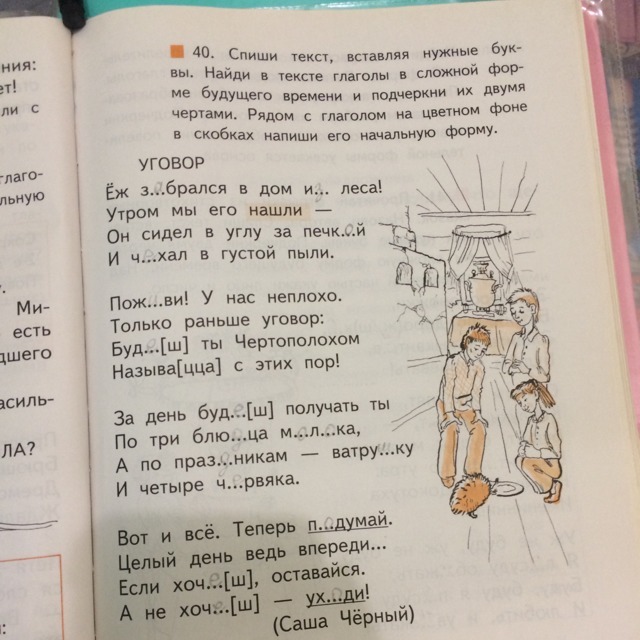 ния:
ет!
ли с
глаго-
альную
у.
Ми-
есть
дшего
асиль-
ЛА?
40. Спиши текст, вставляя нужные бук-
вы. Найди в тексте глаголы в сложной фор-
ме будущего времени и подчеркни их двумя
чертами. Рядом с глаголом на цветном фоне
в скобках напиши его начальную форму.
УГОВОР
Ёж з...брался в дом и... леса!
Утром мы его нашли —
Он сидел в углу за печк...й
И ч...хал в густой пыли.
Пож...ви! У нас неплохо.
Только раньше уговор:
Буд...[ш] ты Чертополохом
Называ[цца] с этих пор!
За день буд...[ш] получать ты
По три блю...ца м...л...ка,
А по праз...никам — ватру...ку
И четыре ч...рвяка.
Вот и всё. Теперь п...думай.
Целый день ведь впереди...
Если хоч...[ш], оставайся.
А не хоч...[ш] — ух...ди!
(Саша Чёрный)